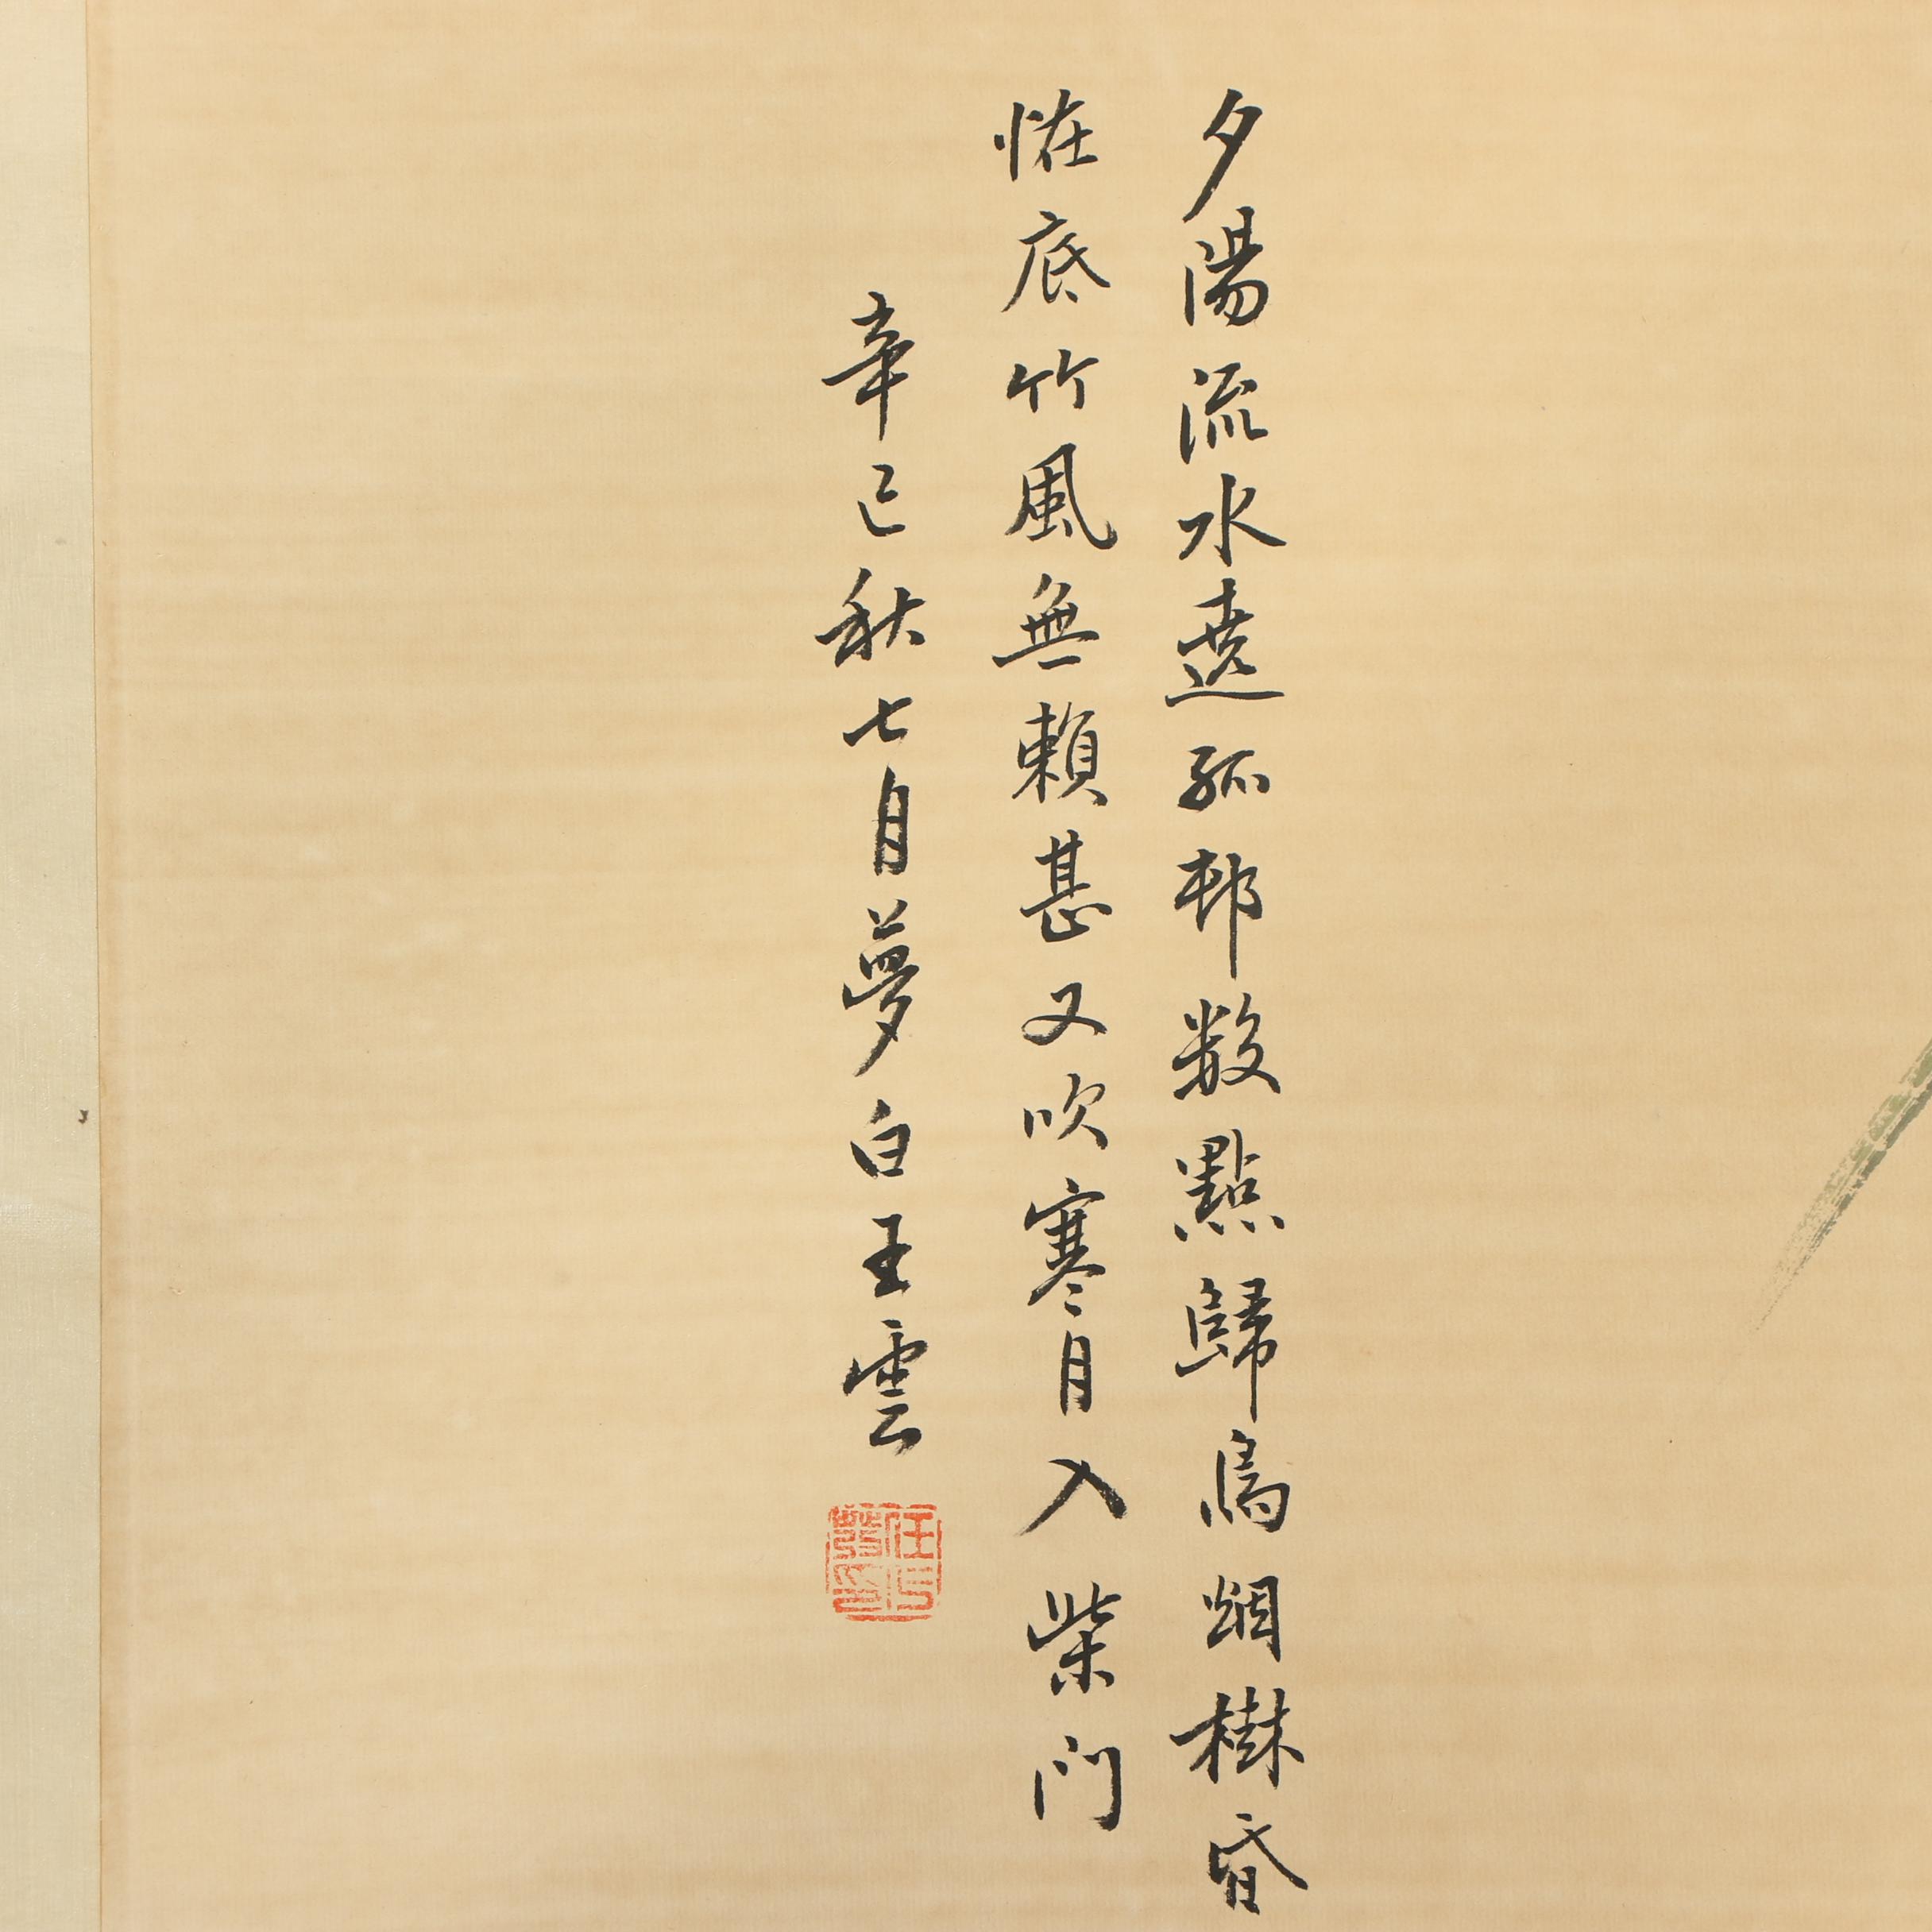 夕陽流水遶孤邨数點歸烏烟樹昏
恠底竹風無賴甚又吹寒月入柴门
辛巳秋七月夢白王雲